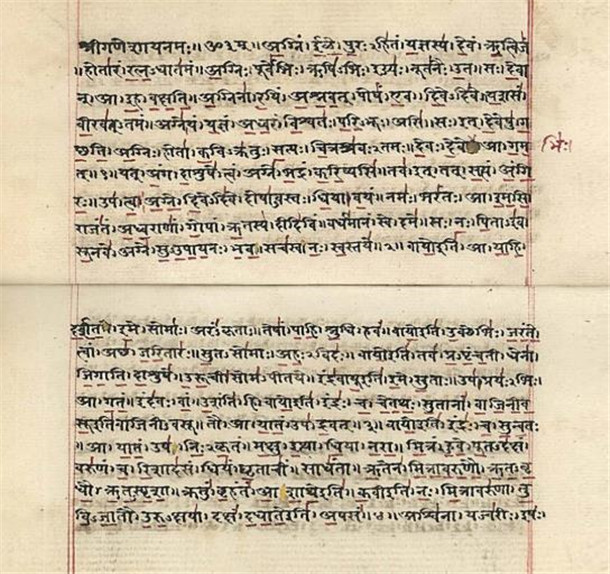 श्रीगणेशायनमः॥ॐ॥ अग्निं। ईळे। पुरःऽहितं। यज्ञस्य। देवं। ऋत्विजं
॥होतारं। रत्नऽधातमं॥ अग्निः। पूर्वेभिः। ऋषिऽभिः। ईड्यः। नूतनैः। उत। सः। देवा
न्। आ। इह। वक्षति॥ अग्निना। रयिं। अश्नवत्। पोषं। एव। दिवेऽदिवे। यशसं।
वीरवत्ऽतमं॥ अग्ने। यं। यज्ञं। अध्वरं। विश्वतः। परिऽभूः। असि। सः। इत्। देवेषु। ग
च्छति॥ अग्निः। होता। कविऽक्रतुः। सत्यः। चित्रश्रवःऽतमः। देवः। देवे। आ। गम
भिः।
त्॥१॥ यत्। अंग। दाशुषे। त्वं। अग्ने। भद्रं। करिष्यसि। तव। इत्। तत्। सत्यं। अंगि
रः॥ उप। त्वा। अग्ने। दिवेऽदिवे। दोषाऽवस्तः। धिया। वयं। नमः। भरंतः। आ। इमसि
राजंतं। अध्वराणां। गोपां। ऋतस्य। दीदिविं। वर्धमानं। स्वे। दमे॥ सः। नः। पिताऽइव
सूनवे। अग्ने। सुऽउपायनः। भव। सचस्व। नः। स्वस्तये॥२॥ वायो इति। आ। याहि।
दर्शत। इमे। सोमाः। अरंऽकृताः॥ तेषां। पाहि। श्रुधि। हवं॥ वायो इति। उक्थेभिः। जरंते
त्वां। अच्छ। जरितारः॥ सुतऽसोमाः। अहःऽविदः॥ वायो इति। तव। प्रऽपृंचती। धेना।
जिगाति। दाशुषे॥ उरूची। सोमऽपीतये॥ इंद्रवायू इति। इमे। सुताः। उप। प्रयःऽभिः।
आ। गतं॥ इंदवः। वां। उशंति। हि॥ वायो इति। इंद्रः। च। चेतथः। सुतानां। वाजिनीव
सू इति वाजिनीऽवसू॥ तौ। आ। यातं। उप। द्रवत्॥३॥ वायो इति। इंद्रः। च। सुन्वतः
॥आ। यातं। उप। निःऽकृतं॥ मक्षु। इत्था। धिया। नरा॥ मित्रं। हुवे। पूतऽदक्षं।
वरुणं। च। रिशादसं॥ धियं। घृताचीं। साधंता॥ ऋतेन। मित्रावरुणौ। ऋतऽवृ
धौ। ऋतऽस्पृशा॥ क्रतुं। बृहंतं। आशाथे इति॥ कवी इति। नः। मित्रावरुणा। तु
विऽजातौ। उरुऽक्षया॥ दक्षं। दधाते इति। अपसं॥४॥ अश्विना। यज्वरीः। इषः।